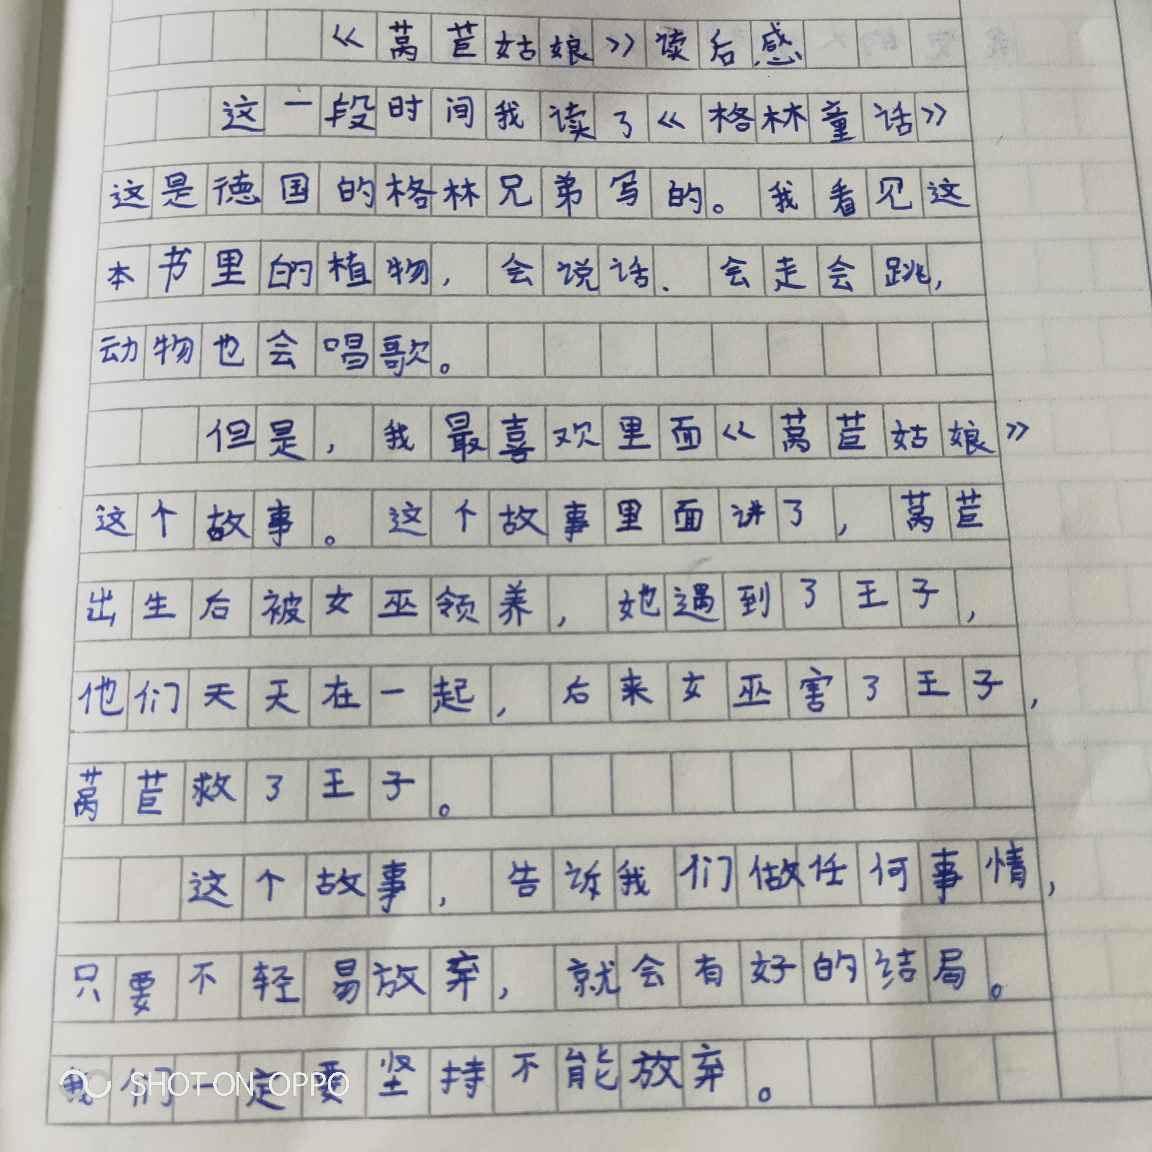 《莴苣姑娘》读后感
这一段时间我读了《格林童话》
这是德国的格林兄弟写的。我看见这
本书里的植物，会说话、会走会跳，
动物也会唱歌。
但是，我最喜欢里面《莴苣姑娘》
这个故事。这个故事里面讲了，莴苣
出生后被女巫领养，她遇到了王子，
他们天天在一起，后来女巫害了王子，
莴苣救了王子。
这个故事，告诉我们做任何事情，
只要不轻易放弃，就会有好的结局。
我们一定要坚持不能放弃。
SHOT ON OPPO